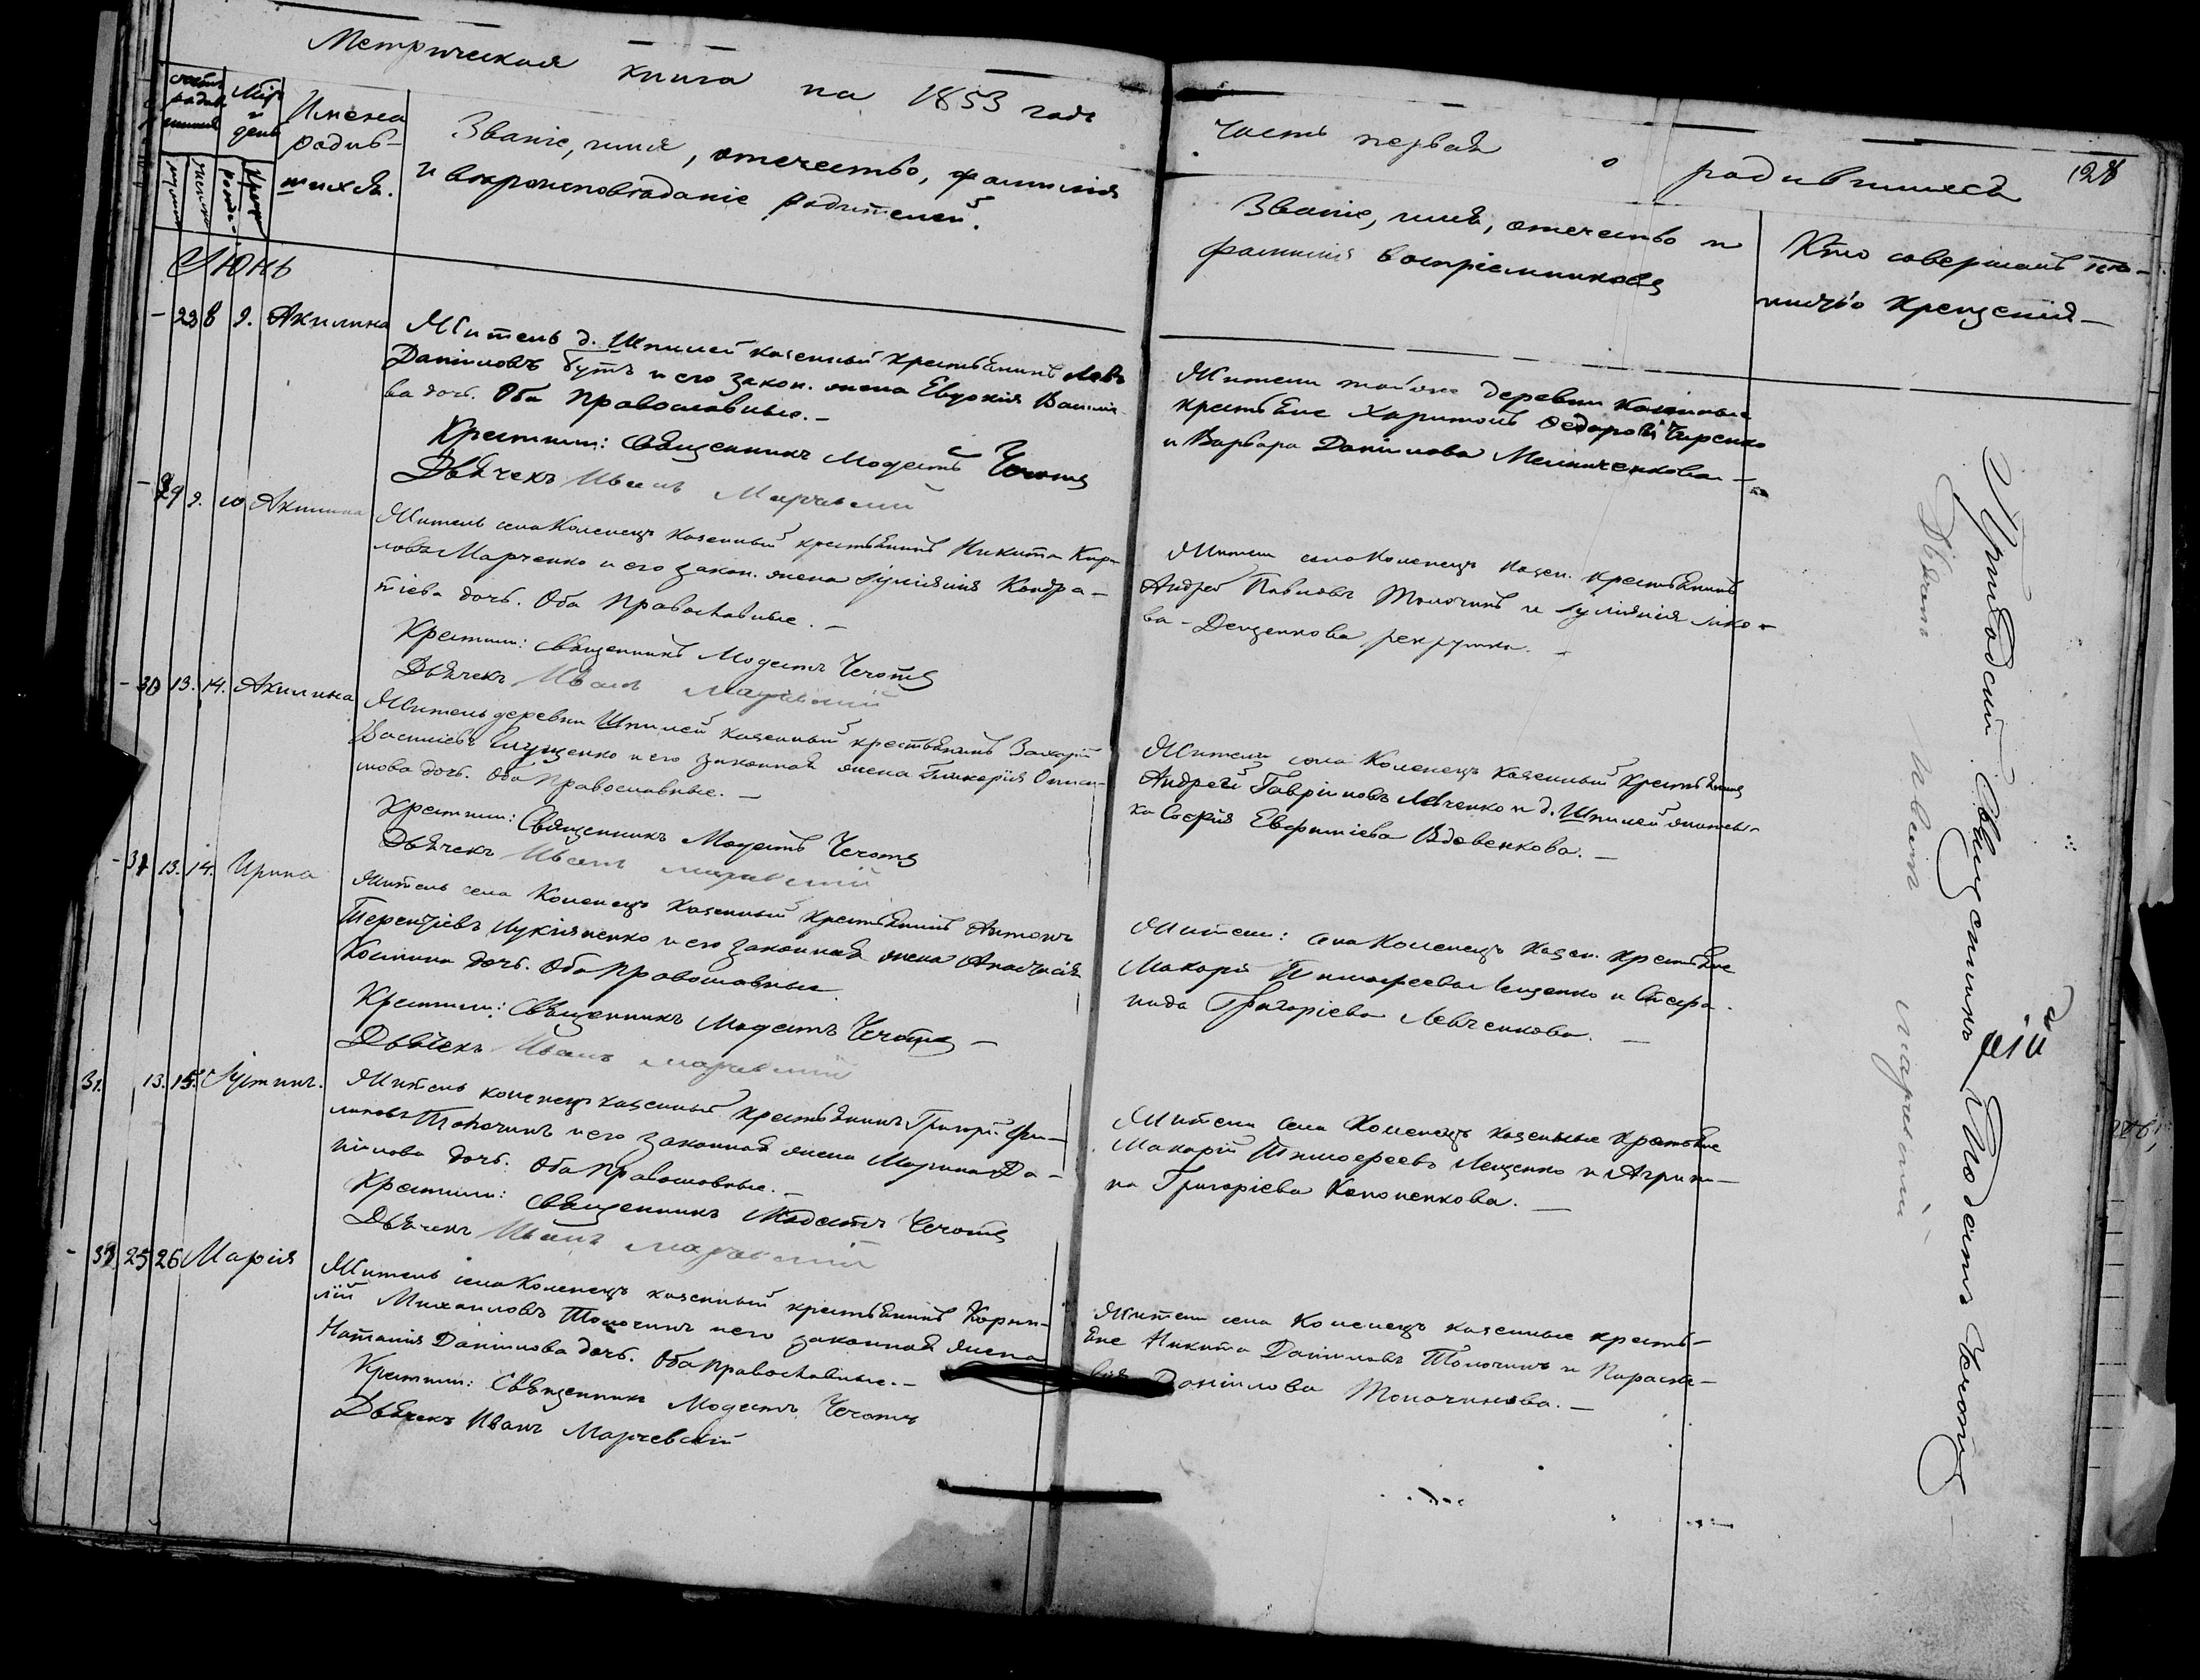 Метрическая книга на 1853 годъ
часть первая о родившихся
128
Имена родив-
шихся.
Званіе, имя, отчество, фамилія
и вѣроисповѣданіе родителей.
Званіе, имя, отчество и
фамилія воспріемниковъ
Кто совершалъ таин-
ство крещенія
Июнь
28 8 9. Акилина
Житель д. Шпилей казенный крестьянинъ Левъ
Даніиловъ Бутъ и его закон. жена Евдокія Василіе-
ва дочь. Оба православные.
Крестили: Священникъ Модестъ Чечотъ
Дьячекъ Иванъ Марчевскій
Жители той же деревни казенные
крестьяне Харитонъ Федоровъ
и Варвара Даніилова Мельниченкова
29 9. 10 Акилина
Житель села Коленецъ казенный крестьянинъ Никита Кири-
ловъ Марченко и его закон. жена Іуліянія Кондра-
тіева дочь. Оба православные.
Крестили: Священникъ Модестъ Чечотъ
Дьячекъ Иванъ Марчевскій
Жители села Коленецъ казен. крестьянинъ
Андрей Павловъ Толочинъ и Іуліянія Іако-
ва Деценкова рекрутка.
30 13. 14. Акилина
Житель деревни Шпилей казенный крестьянинъ Захарій
Василіевъ и его законная жена Гликерія
дочь. Оба православные.
Крестили: Священникъ Модестъ Чечотъ
Дьячекъ Иванъ Марчевскій
Жители села Коленецъ казенный крестьянинъ
Андрей Гавріиловъ Левченко и д. Шпилей жительк-
ка Софія Евфиміева Вдовенкова.
31 13. 14. Ирина
Житель села Коленецъ казенный крестьянинъ Антонъ
Терентіевъ Лукіяненко и его законная жена Анастасія
Космина дочь. Оба православные.
Крестили: Священникъ Модестъ Чечотъ
Дьячекъ Иванъ Марчевскій
Жители: села Коленецъ казен. крестьяне
Макарій Тимофеевъ Лещенко и Стефа-
нида Григоріева Левченкова.
31. 13. 15. Іустинъ.
Житель Коленецъ казенный крестьянинъ Григорій Фи-
липовъ Толочинъ и его законная жена Марина Да-
ніилова дочь. Оба православные.
Крестили: Священникъ Модестъ Чечотъ
Дьячекъ Иванъ Марчевскій
Жители села Коленецъ казенные крестьяне
Макарій Тимофеевъ Лещенко и Агрипи-
на Григоріева Кононенкова.
25 26 Марія
Житель села Коленецъ казенный крестьянинъ Корни-
лій Михаиловъ Толочинъ и его законная жена
Наталія Даніилова дочь. Оба православные.
Крестили: Священникъ Модестъ Чечотъ
Дьячекъ Иванъ Марчевскій
Жители села Коленецъ казенные кресть-
яне Никита Даніиловъ Толочинъ и Параске-
вія Даніилова Толочинова.
Священникъ Модестъ Чечотъ
Дьячекъ Иванъ Марчевскій